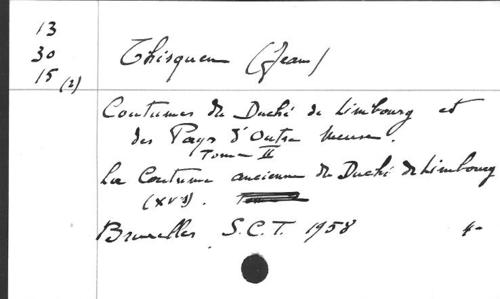 13
30
15 (2)
Thisquen (Jean)
Coutumes du Duché de Limbourg et
des Pays d'Outre Meuse.
Tome II
La Coutume ancienne du Duché de Limbourg
(XVI).
Bruxelles S.C.T. 1958 4°